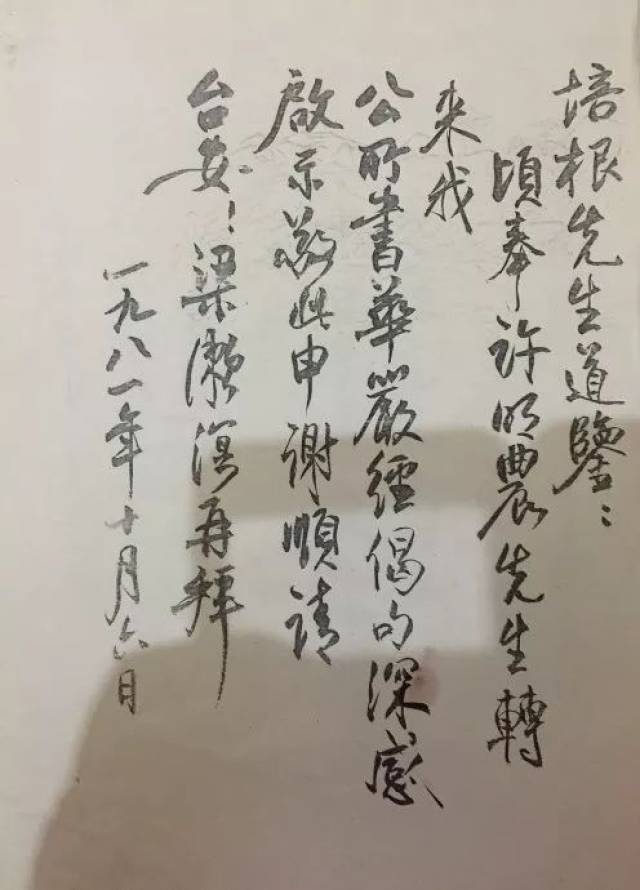 培根先生道鑒：
頃奉許明農先生轉
来我
公所書華嚴經偈句深感
啟示敬此申謝順請
台安！梁漱溟再拜
一九八一年十月六日